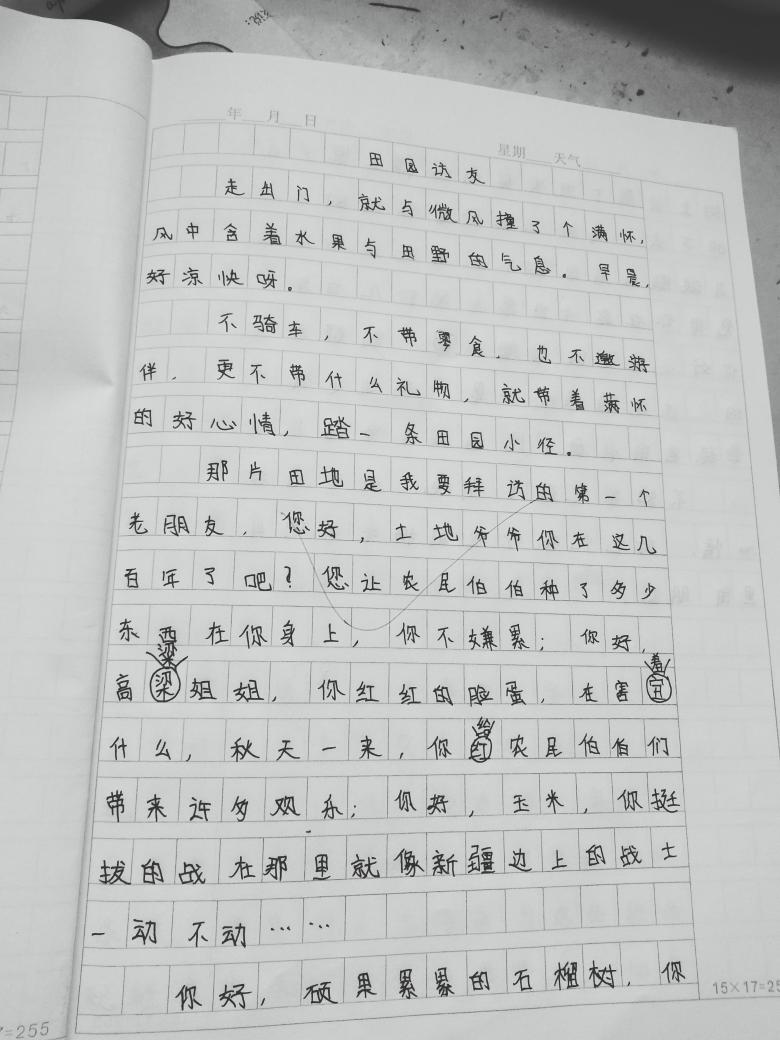 年 月 日
星期 天气
田园访友
走出门，就与微风撞了个满怀，
风中含着水果与田野的气息。早晨，
好凉快呀。
不骑车，不带零食，也不邀游
伴，更不带什么礼物，就带着满怀
的好心情，踏一条田园小径。
那片田地是我要拜访的第一个
老朋友，您好，土地爷爷你在这几
百年了吧？您让农民伯伯种了多少
东西在你身上，你不嫌累；你好，
高粱姐姐，你红红的脸蛋，在害羞
什么，秋天一来，你给农民伯伯们
带来许多欢乐；你好，玉米，你挺
拔的战在那里就像新疆边上的战士
一动不动……
你好，硕果累累的石榴树，你
15×17=25
7=255